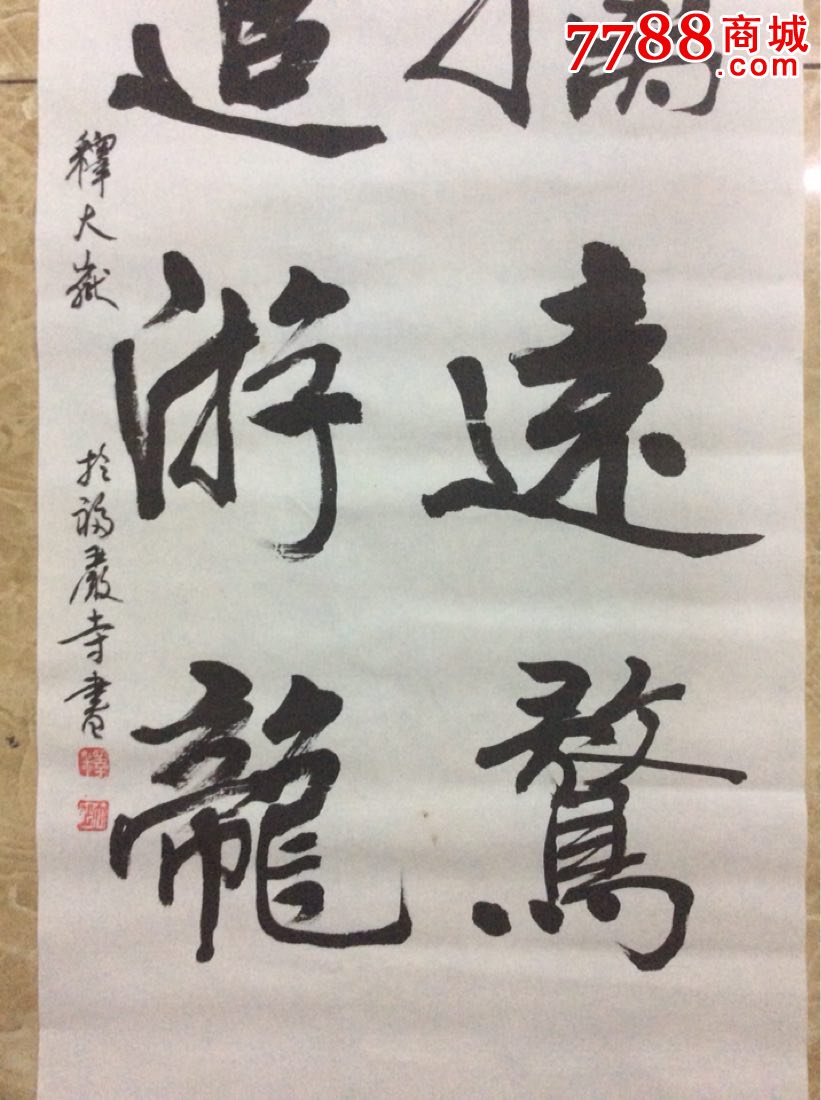 7788商城
.com
遠騖
追游龍
釋大嶽 於福嚴寺書